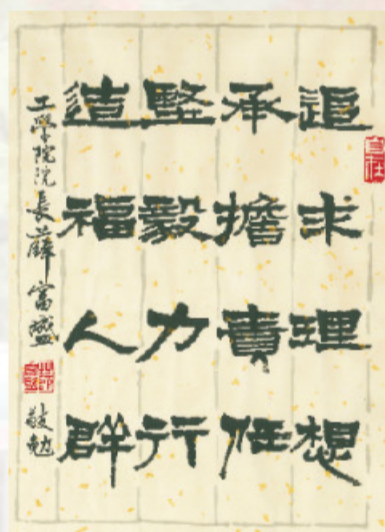 追求理想
承擔責任
堅毅力行
造福人群
工學院院長薛富盛
敬勉
自在